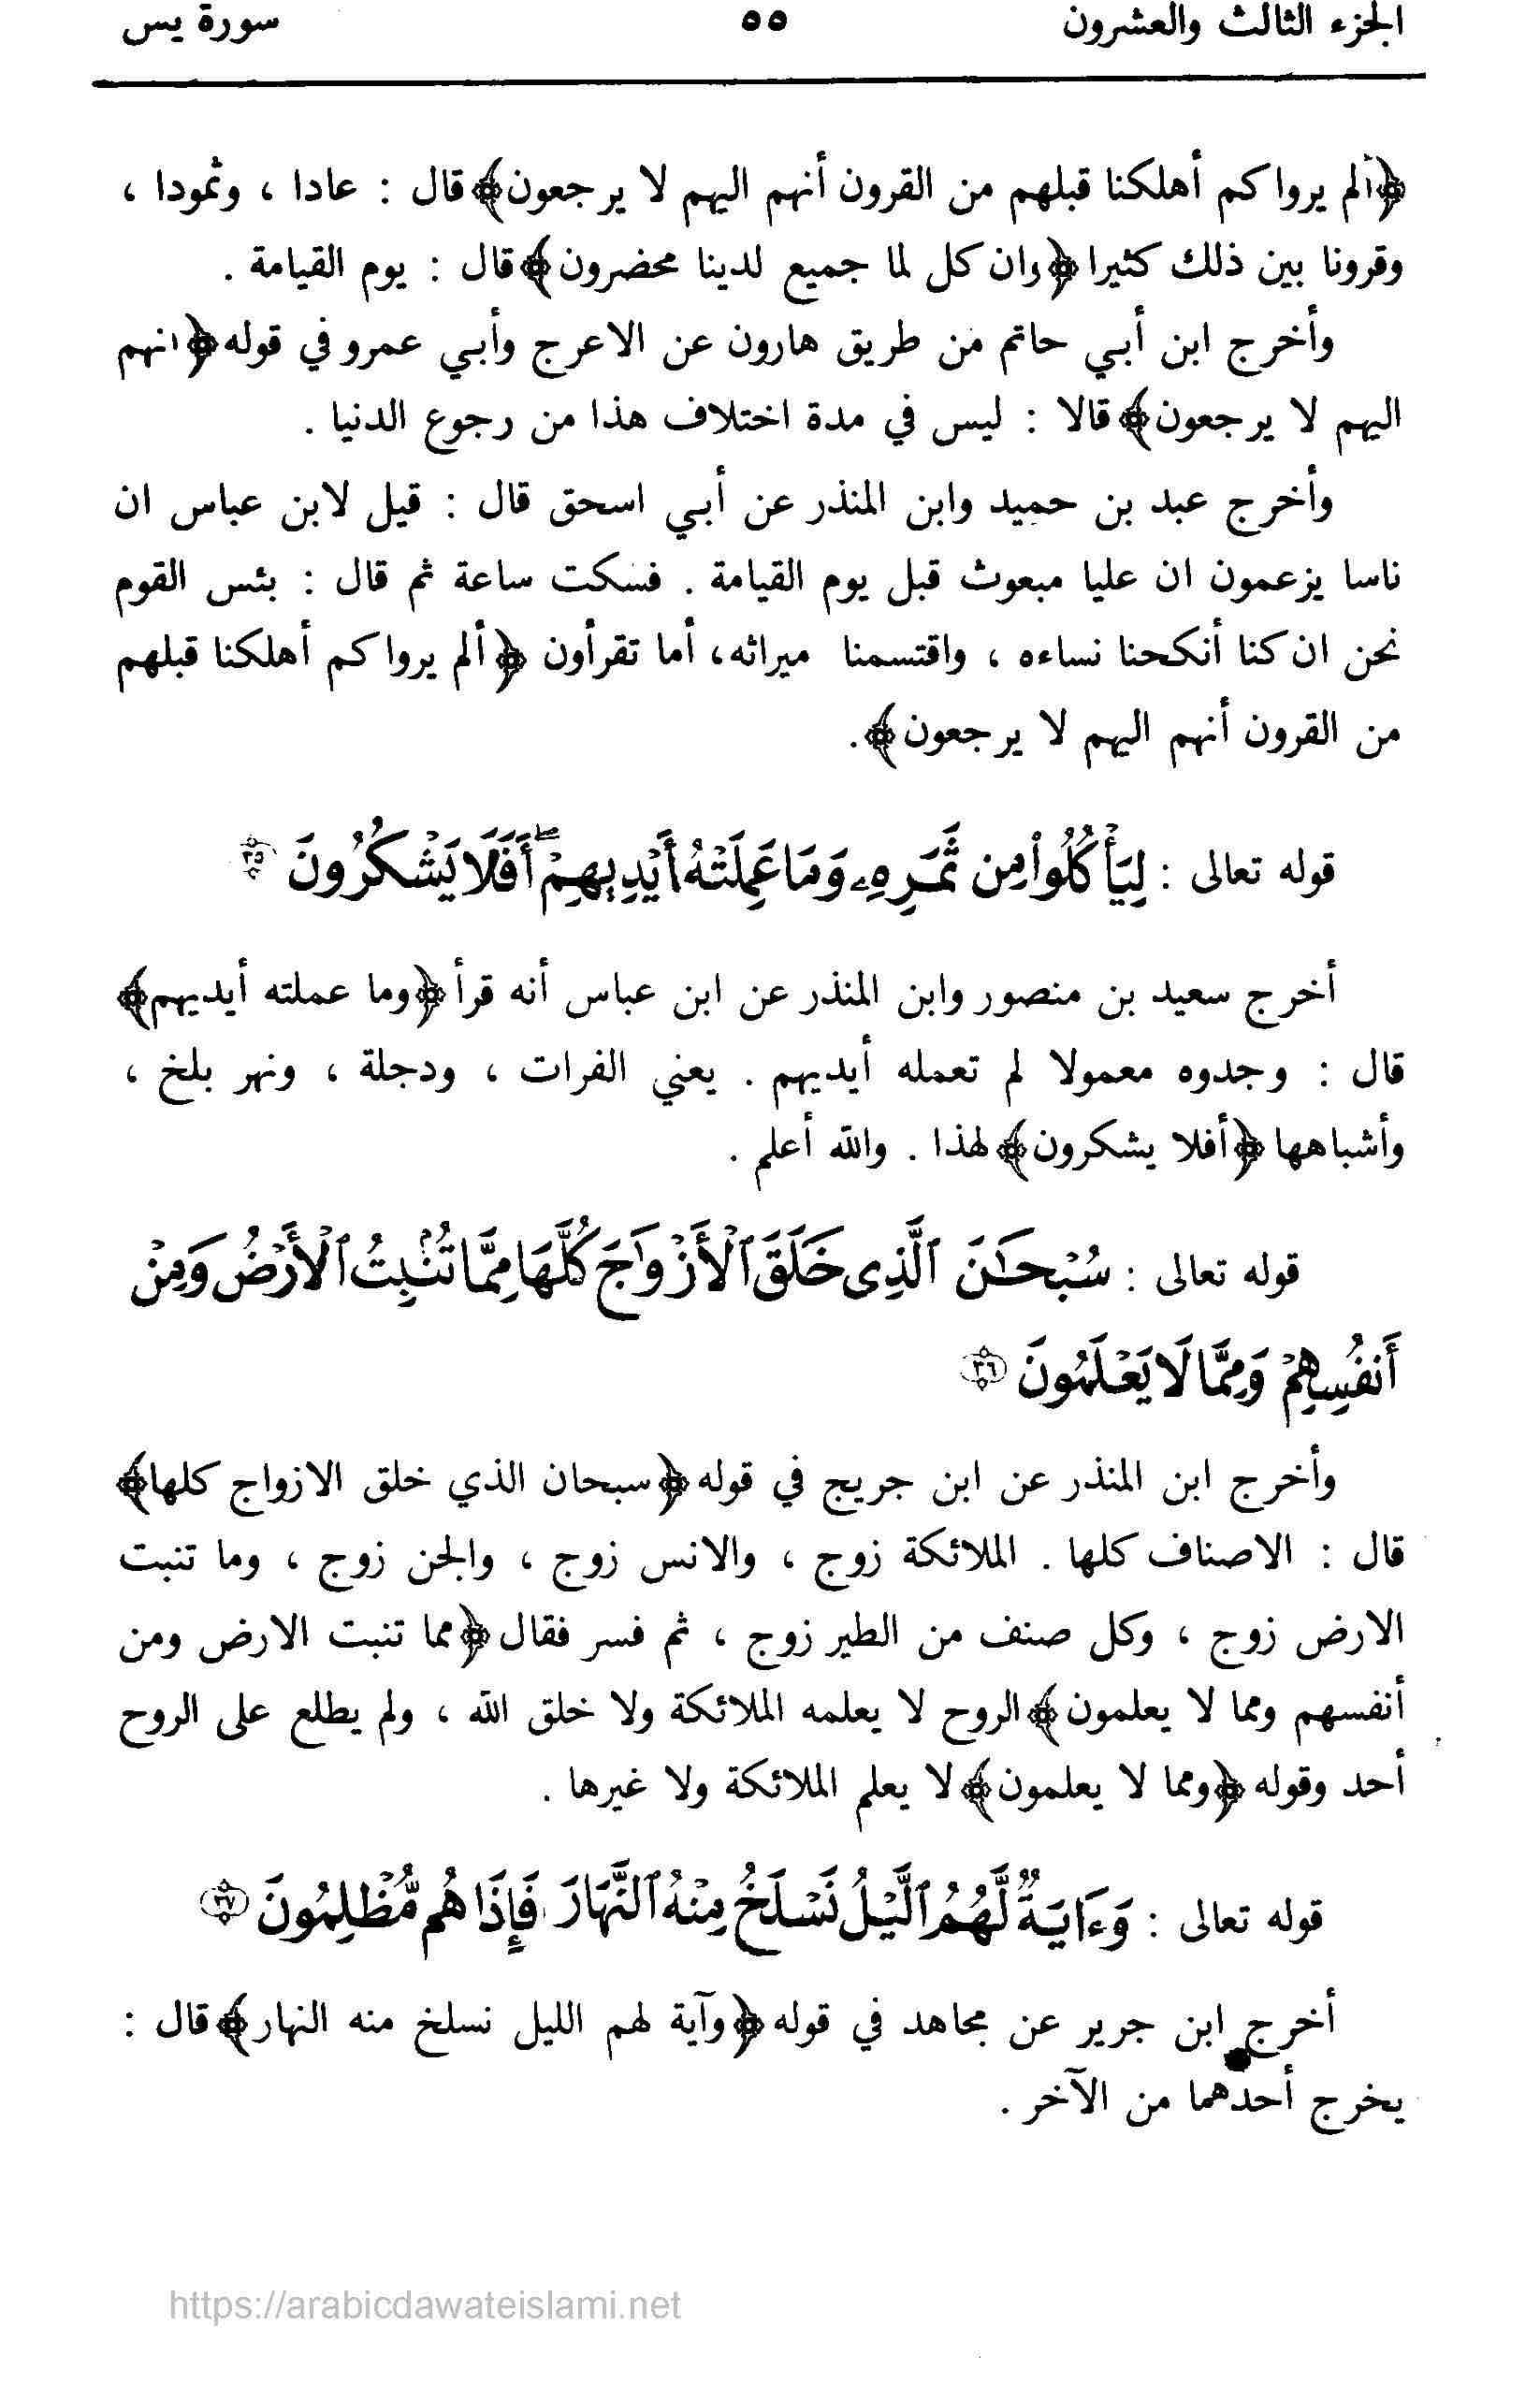 الجزء الثالث والعشرون ٥٥ سورة يس
﴿ألم يروا كم أهلكنا قبلهم من القرون أنهم اليهم لا يرجعون﴾قال : عادا ، وثمودا ،
وقرونا بين ذلك كثيرا ﴿وان كل لما جميع لدينا محضرون﴾قال : يوم القيامة .
وأخرج ابن أبي حاتم من طريق هارون عن الاعرج وأبي عمرو في قوله﴿انهم
اليهم لا يرجعون﴾قالا : ليس في مدة اختلاف هذا من رجوع الدنيا .
وأخرج عبد بن حميد وابن المنذر عن أبي اسحق قال : قيل لابن عباس ان
ناسا يزعمون ان عليا مبعوث قبل يوم القيامة . فسكت ساعة ثم قال : بئس القوم
نحن ان كنا أنكحنا نساءه ، واقتسمنا ميراثه، أما تقرأون ﴿ألم يروا كم أهلكنا قبلهم
من القرون أنهم اليهم لا يرجعون﴾.
قوله تعالى : لِيَأْكُلُواْ مِن ثَمَرِهِۦ وَمَا عَمِلَتْهُ أَيْدِيهِمْ ۖ أَفَلَا يَشْكُرُونَ ٣٥
أخرج سعيد بن منصور وابن المنذر عن ابن عباس أنه قرأ ﴿وما عملته أيديهم﴾
قال : وجدوه معمولا لم تعمله أيديهم . يعني الفرات ، ودجلة ، ونهر بلخ ،
وأشباهها ﴿أفلا يشكرون﴾لهذا . والله أعلم .
قوله تعالى : سُبْحَٰنَ ٱلَّذِى خَلَقَ ٱلْأَزْوَٰجَ كُلَّهَا مِمَّا تُنۢبِتُ ٱلْأَرْضُ وَمِنْ
أَنفُسِهِمْ وَمِمَّا لَا يَعْلَمُونَ ٣٦
وأخرج ابن المنذر عن ابن جريج في قوله ﴿سبحان الذي خلق الازواج كلها﴾
قال : الاصناف كلها . الملائكة زوج ، والانس زوج ، والجن زوج ، وما تنبت
الارض زوج ، وكل صنف من الطير زوج ، ثم فسر فقال ﴿مما تنبت الارض ومن
أنفسهم ومما لا يعلمون﴾الروح لا يعلمه الملائكة ولا خلق الله ، ولم يطلع على الروح
أحد وقوله ﴿ومما لا يعلمون﴾لا يعلم الملائكة ولا غيرها .
قوله تعالى : وَءَايَةٌ لَّهُمُ ٱلَّيْلُ نَسْلَخُ مِنْهُ ٱلنَّهَارَ فَإِذَا هُم مُّظْلِمُونَ ٣٧
أخرج ابن جرير عن مجاهد في قوله ﴿وآية لهم الليل نسلخ منه النهار﴾قال :
يخرج أحدهما من الآخر .
https://arabicdawateislami.net